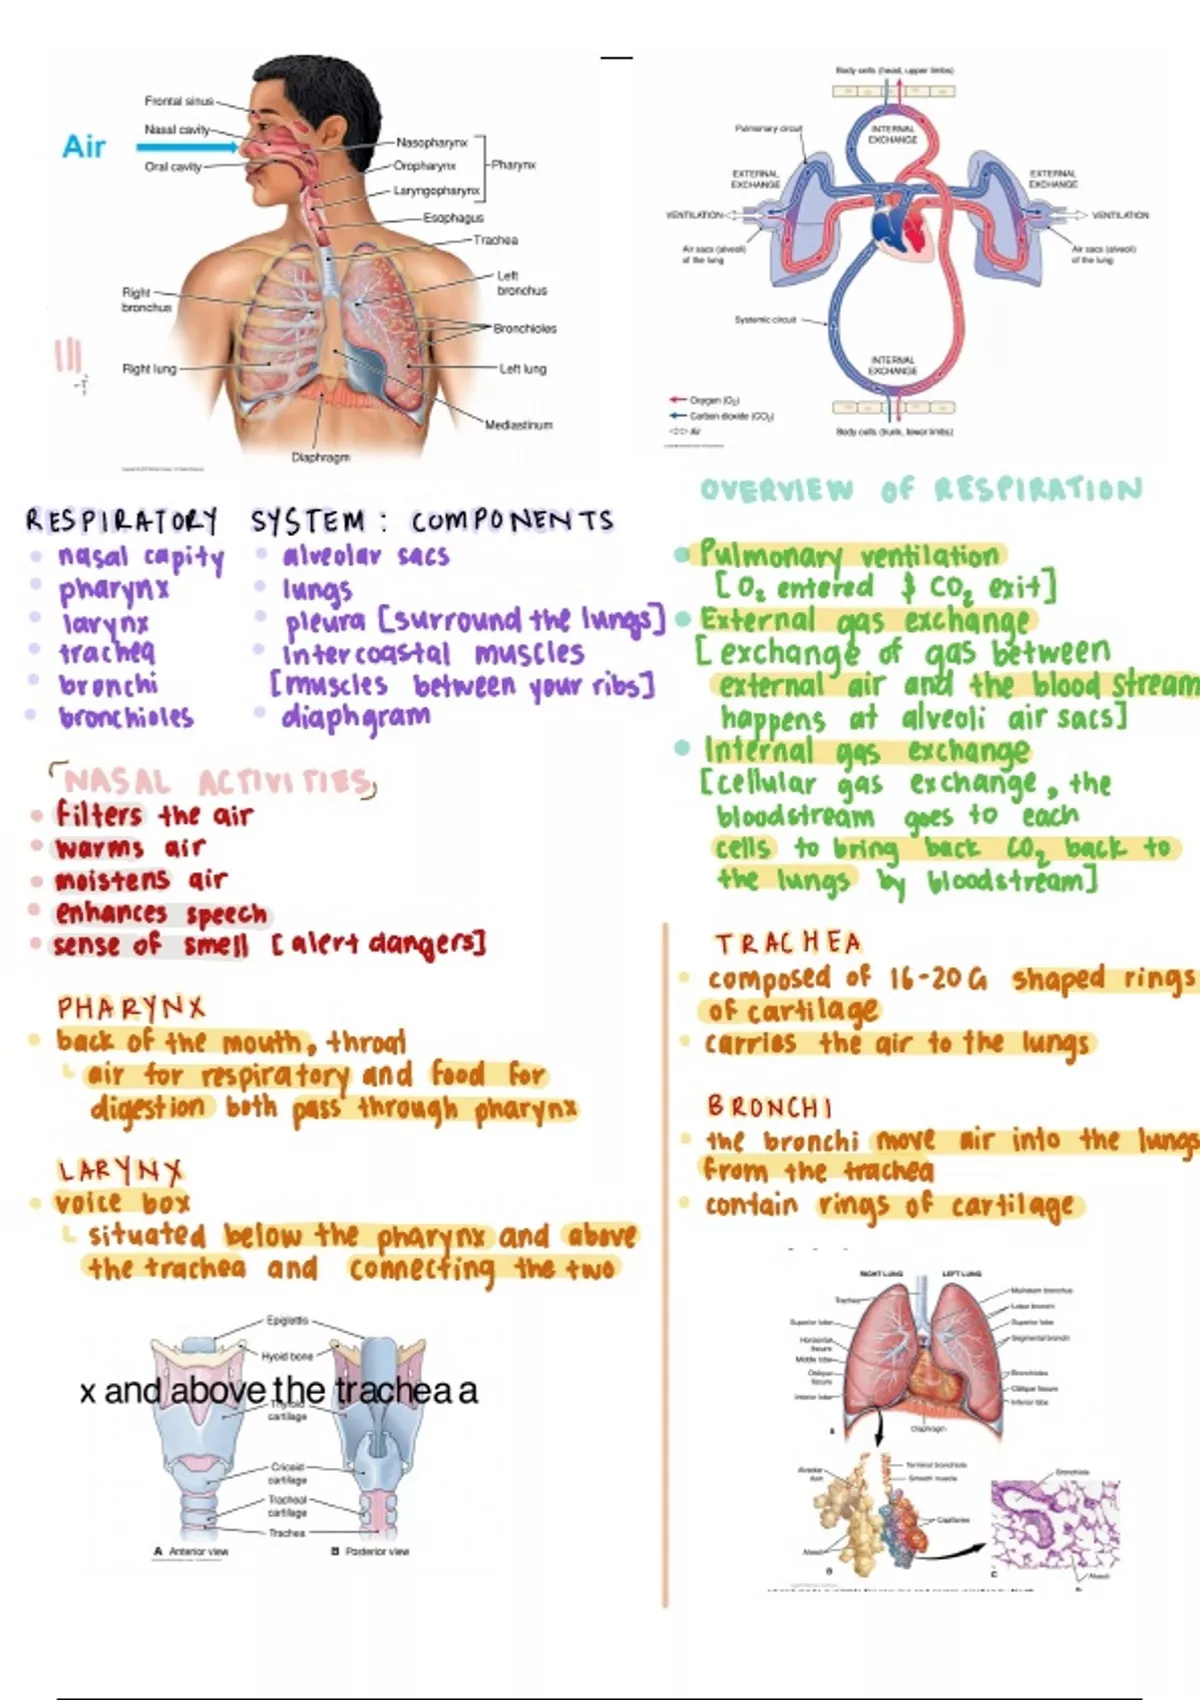 Frontal sinus
Nasal cavity
Air
Oral cavity
Nasopharynx
Oropharynx
Pharynx
Laryngopharynx
Esophagus
Trachea
Left
bronchus
Right
bronchus
Bronchioles
Right lung
Left lung
Mediastinum
Diaphragm
Body cells (head, upper limbs)
Pulmonary circuit
INTERNAL
EXCHANGE
EXTERNAL
EXCHANGE
EXTERNAL
EXCHANGE
VENTILATION
VENTILATION
Air sacs (alveoli)
of the lung
Air sacs (alveoli)
of the lung
Systemic circuit
INTERNAL
EXCHANGE
Oxygen (O₂)
Carbon dioxide (CO₂)
Air
Body cells (trunk, lower limbs)
RESPIRATORY SYSTEM: COMPONENTS
nasal capity
pharynx
larynx
trachea
bronchi
bronchioles
alveolar sacs
lungs
pleura [surround the lungs]
intercoastal muscles
[muscles between your ribs]
diaphgram
NASAL ACTIVITIES
filters the air
warms air
moistens air
enhances speech
sense of smell [alert dangers]
PHARYNX
back of the mouth, throat
air for respiratory and food for
digestion both pass through pharynx
LARYNX
voice box
situated below the pharynx and above
the trachea and connecting the two
Epiglottis
Hyoid bone
x and above the trachea a
Thyroid
cartilage
Cricoid
cartilage
Tracheal
cartilage
Trachea
A Anterior view
B Posterior view
OVERVIEW OF RESPIRATION
Pulmonary ventilation
[O₂ entered $ CO₂ exit]
External gas exchange
[exchange of gas between
external air and the blood stream
happens at alveoli air sacs]
Internal gas exchange
[cellular gas exchange, the
bloodstream goes to each
cells to bring back CO₂ back to
the lungs by bloodstream]
TRACHEA
composed of 16-20 G shaped rings
of cartilage
carries the air to the lungs
BRONCHI
the bronchi move air into the lungs
from the trachea
contain rings of cartilage
RIGHT LUNG
LEFT LUNG
Trachea
Superior lobe
Horizontal
fissure
Middle lobe
Oblique
fissure
Inferior lobe
Mainstem bronchus
Lobar bronchi
Superior lobe
Segmental bronchi
Bronchioles
Oblique fissure
Inferior lobe
A
Diaphragm
Alveolar
duct
Terminal bronchiole
Smooth muscle
Capillaries
Alveoli
B
Bronchiole
C
Alveoli